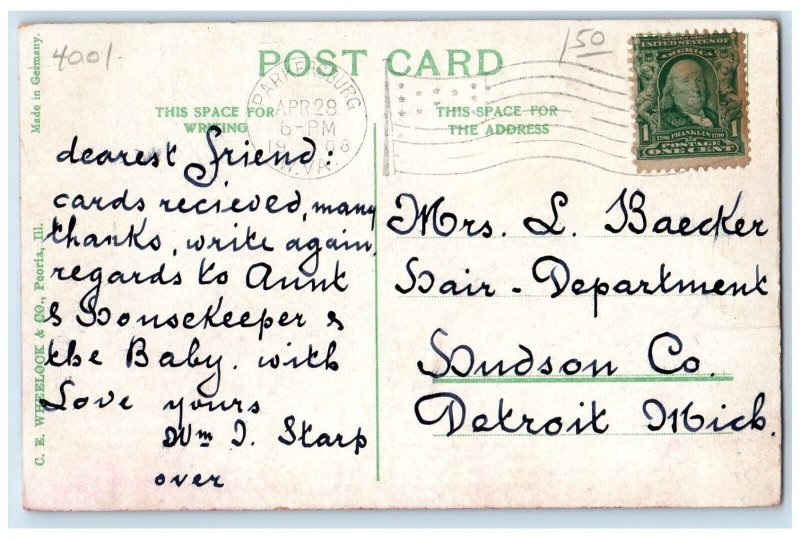 4001.
1 50
POST CARD
Made in Germany.
C. E. WHEELOCK & CO., Peoria, Ill.
PARKERSBURG
APR 28
6-PM
1908
W.VA.
UNITED STATES OF
1
FRANKLIN
1
POSTAGE
ONE CENT
THIS SPACE FOR
WRITING
THIS SPACE FOR
THE ADDRESS
dearest friend:
cards recieved, many
thanks, write again.
regards to Aunt
& Housekeeper &
the Baby. with
Love yours
Wm J. Starp
over
Mrs. L. Baecker
Hair - Department
Hudson Co.
Detroit Mich.